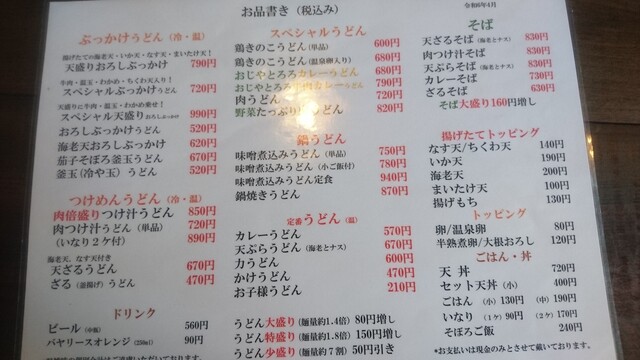 お品書き（税込み）
令和6年4月
ぶっかけうどん（冷・温）
揚げたての海老天・いか天・なす天・まいたけ天！
天盛りおろしぶっかけ 790円
牛肉・温玉・わかめ・ちくわ天入り！
スペシャルぶっかけうどん 720円
天盛りに牛肉・温玉・わかめ乗せ！
スペシャル天盛りおろしぶっかけ 990円
おろしぶっかけうどん 520円
海老天おろしぶっかけ 620円
茄子そぼろ釜玉うどん 670円
釜玉（冷や玉）うどん 520円
つけめんうどん（冷・温）
肉倍盛りつけ汁うどん 850円
肉つけ汁うどん（単品） 720円
（いなり２ケ付） 890円
海老天、なす天付き
天ざるうどん 670円
ざる（釜揚げ）うどん 470円
ドリンク
ビール（中瓶） 560円
バヤリースオレンジ（250ml） 90円
スペシャルうどん
鶏きのこうどん（単品） 600円
鶏きのこうどん（温泉卵入り） 680円
おじやとろろカレーうどん 680円
おじやとろろ牛肉カレーうどん 790円
肉うどん 720円
野菜たっぷり うどん 820円
鍋うどん
味噌煮込みうどん（単品） 750円
味噌煮込みうどん（小ご飯付） 780円
味噌煮込みうどん定食 940円
鍋焼きうどん 870円
定番うどん（温）
カレーうどん 570円
天ぷらうどん（海老とナス） 670円
力うどん 600円
かけうどん 470円
お子様うどん 210円
うどん大盛り（麺量約1.4倍）80円増し
うどん特盛り（麺量約1.8倍）150円増し
うどん少盛り（麺量約７割）50円引き
そば
天ざるそば（海老とナス） 830円
肉つけ汁そば 830円
天ぷらそば（海老とナス） 830円
カレーそば 730円
ざるそば 630円
そば大盛り160円増し
揚げたてトッピング
なす天/ちくわ天 140円
いか天 190円
海老天 200円
まいたけ天 100円
揚げもち 130円
トッピング
卵/温泉卵 80円
半熟煮卵/大根おろし 120円
ごはん・丼
天丼 720円
セット天丼（小） 400円
ごはん （小）130円 （中）190円
いなり （1ケ）90円 （2ケ）170円
そぼろご飯 240円
*お支払いは現金のみとさせて戴いております。